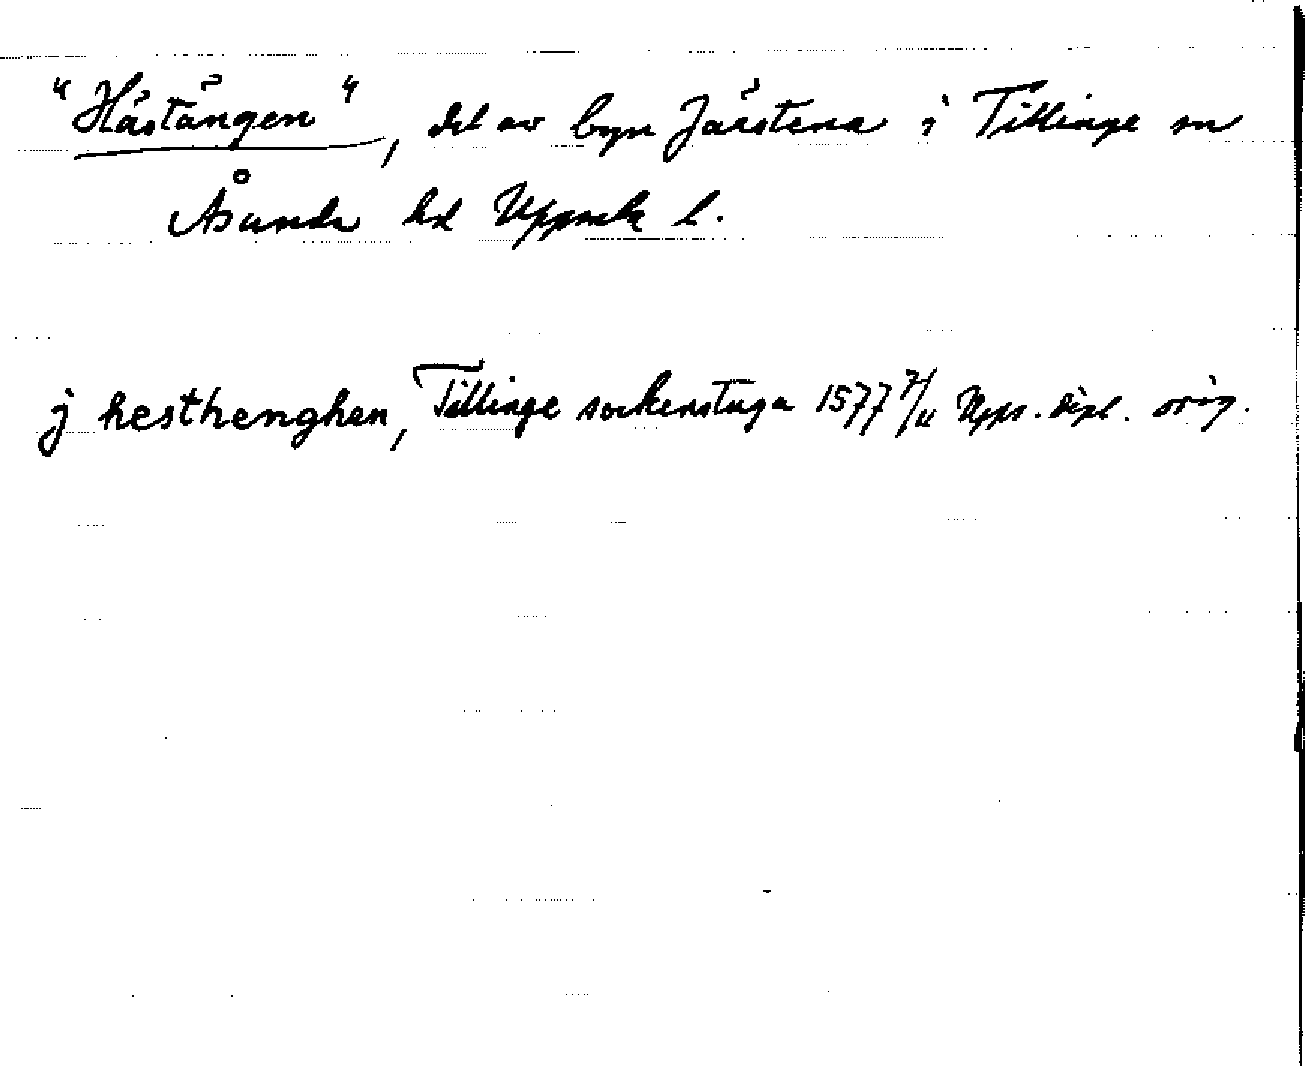 "Hästängen", del av byn Järstena i Tillinge sn
Åsunda hd Uppsala l.
j hesthenghen, Tillinge sockenstuga 1577 7/11 Upps. dipl. orig.